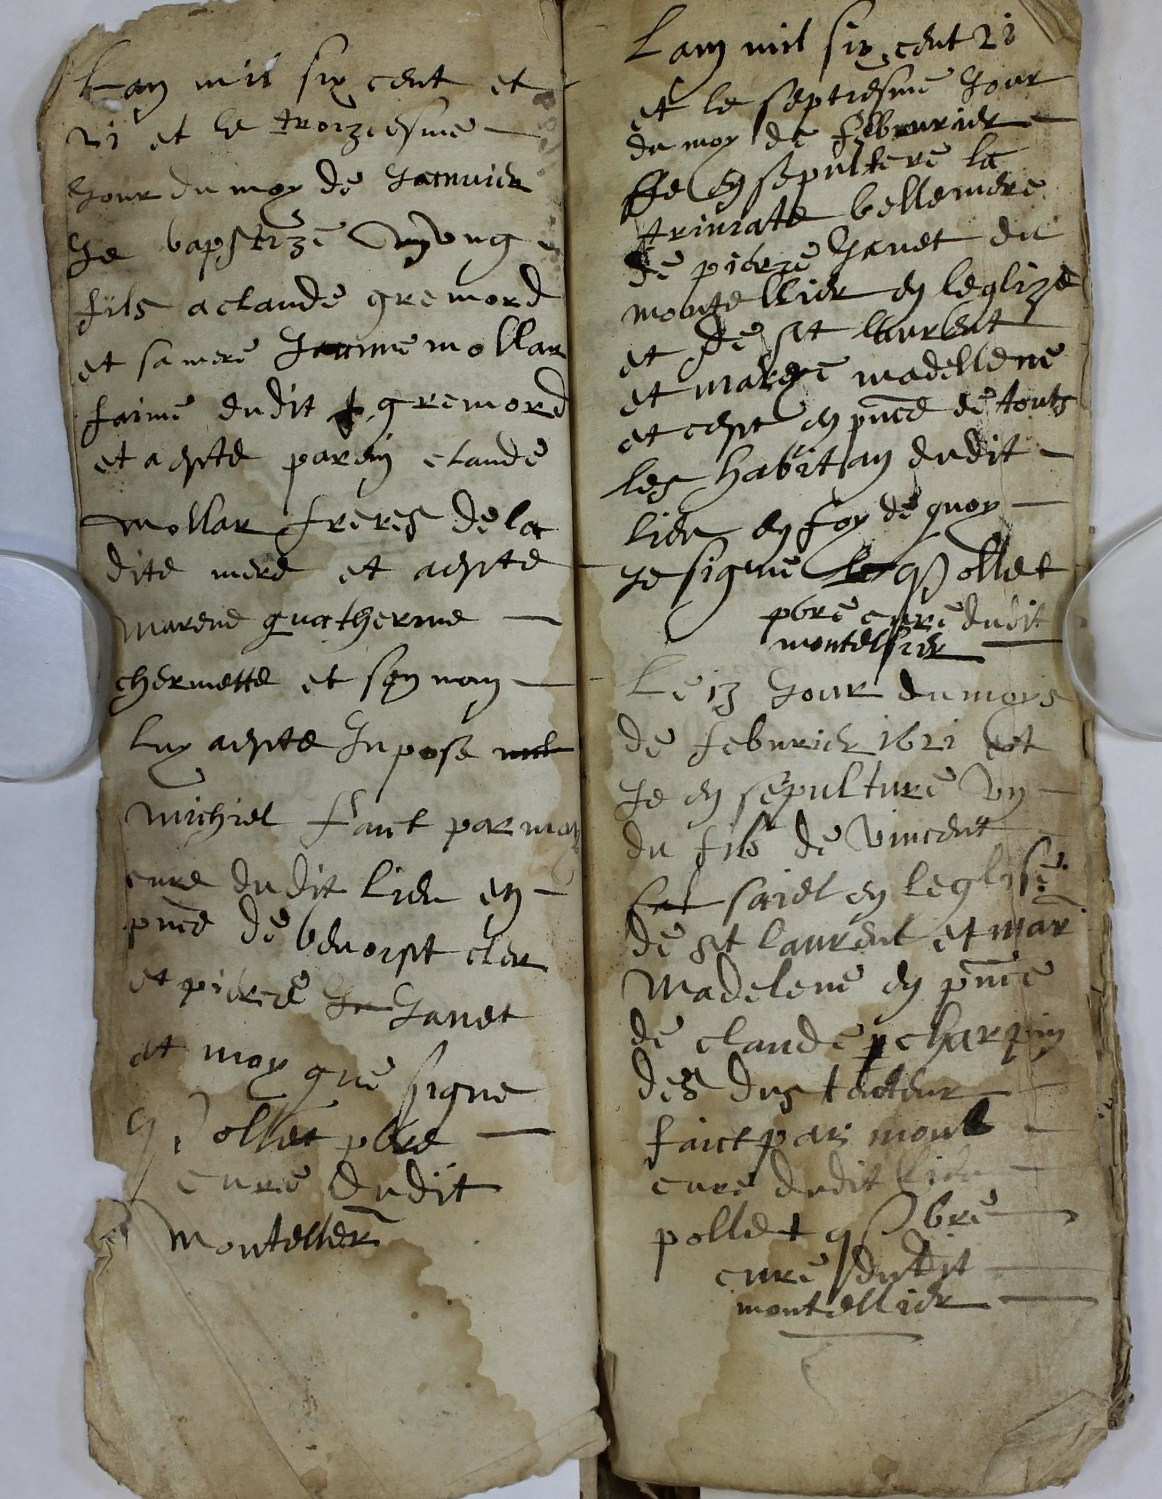 Lan mil six cent et
21 et le troiziesme
Jour du moy de Janvier
Je baptize ung
fils a claude gremord
et sa mere Janne mollar
faime dudit gremord
et a este parin claude
mollar freres de la
dite mere et a este
marene quatherine
chermette et son nom
luy a este Inpose
michiel faict par moy
cure dudit lieu en
pnce de benoist cler
et pierre Ja Janet
et moy que signe
Pollet pbre
cure dudit
montellier
Lan mil six cent 21
et le septiesme Jour
du moy de febvrier
Je en sepultere la
trinitate bellemere
de pierre Janet du
montellier en leglize
et de st laurent
et madellene
et cest en pnce de touts
les habitan dudit
lieu en foy de quoy
Je signe Pollet
pbre cure dudit
montellier
Le 13 Jour du moys
de febvrier 1621 et
Je en sepulture un
du fils de vincent
sriel en leglise
de st laurent et mari
madelene en pnce
de claude charpin
des dus tuteur
faict par
cure dudit lieu
pollet pbre
cure dudit
montellier